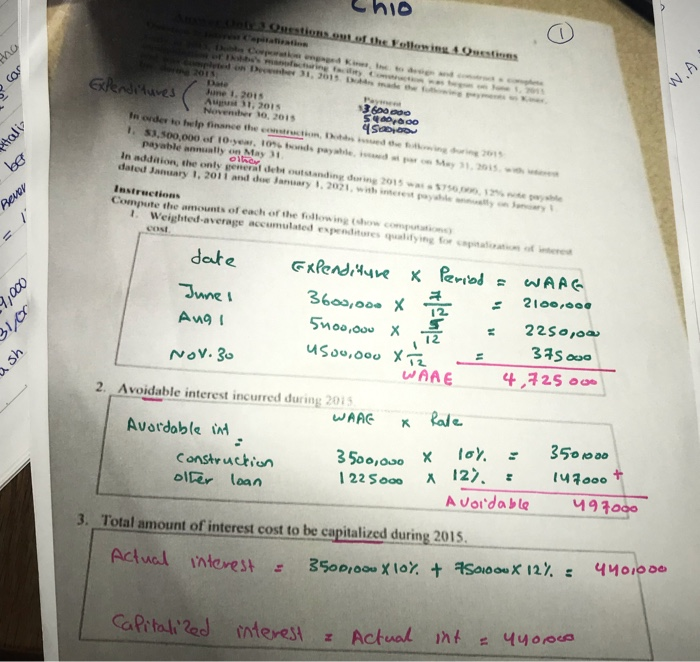 chio
①
Answer Only 3 Questions out of the Following 4 Questions
Capitalization
Dobbs Corporation engaged Kiner, Inc. to design and construct a complete
of Dobbs's manufacturing facility. Construction was begun on June 1, 2015
completed on December 31, 2015. Dobbs made the following payments to Kiner,
during 2015:
Expenditures
Date Payment
June 1, 2015 3600000
August 31, 2015 5400,000
November 30, 2015 4500,000
In order to help finance the construction, Dobbs issued the following during 2015:
1. $3,500,000 of 10-year, 10% bonds payable, issued at par on May 31, 2015, with interest
payable annually on May 31.
other
In addition, the only general debt outstanding during 2015 was a $750,000, 12% note payable
dated January 1, 2011 and due January 1, 2021, with interest payable annually on January 1.
Instructions
Compute the amounts of each of the following (show computations)
1. Weighted-average accumulated expenditures qualifying for capitalization of interest
cost.
date Expenditure x Period = WAAE
June 1 3600,000 x 7/12 = 2100,000
Aug 1 5400,000 x 5/12 = 2250,000
Nov. 30 4500,000 x 1/12 = 375000
WAAE 4,725000
2. Avoidable interest incurred during 2015
WAAE x Rate
Avoidable int :
construction 3500,000 x 10% = 350,000
other loan 1225000 x 12% = 147000 +
Avoidable 497000
3. Total amount of interest cost to be capitalized during 2015.
Actual interest = 3500,000 x 10% + 750,000 x 12% = 440,000
Capitalized interest = Actual int = 440,000
W.A.